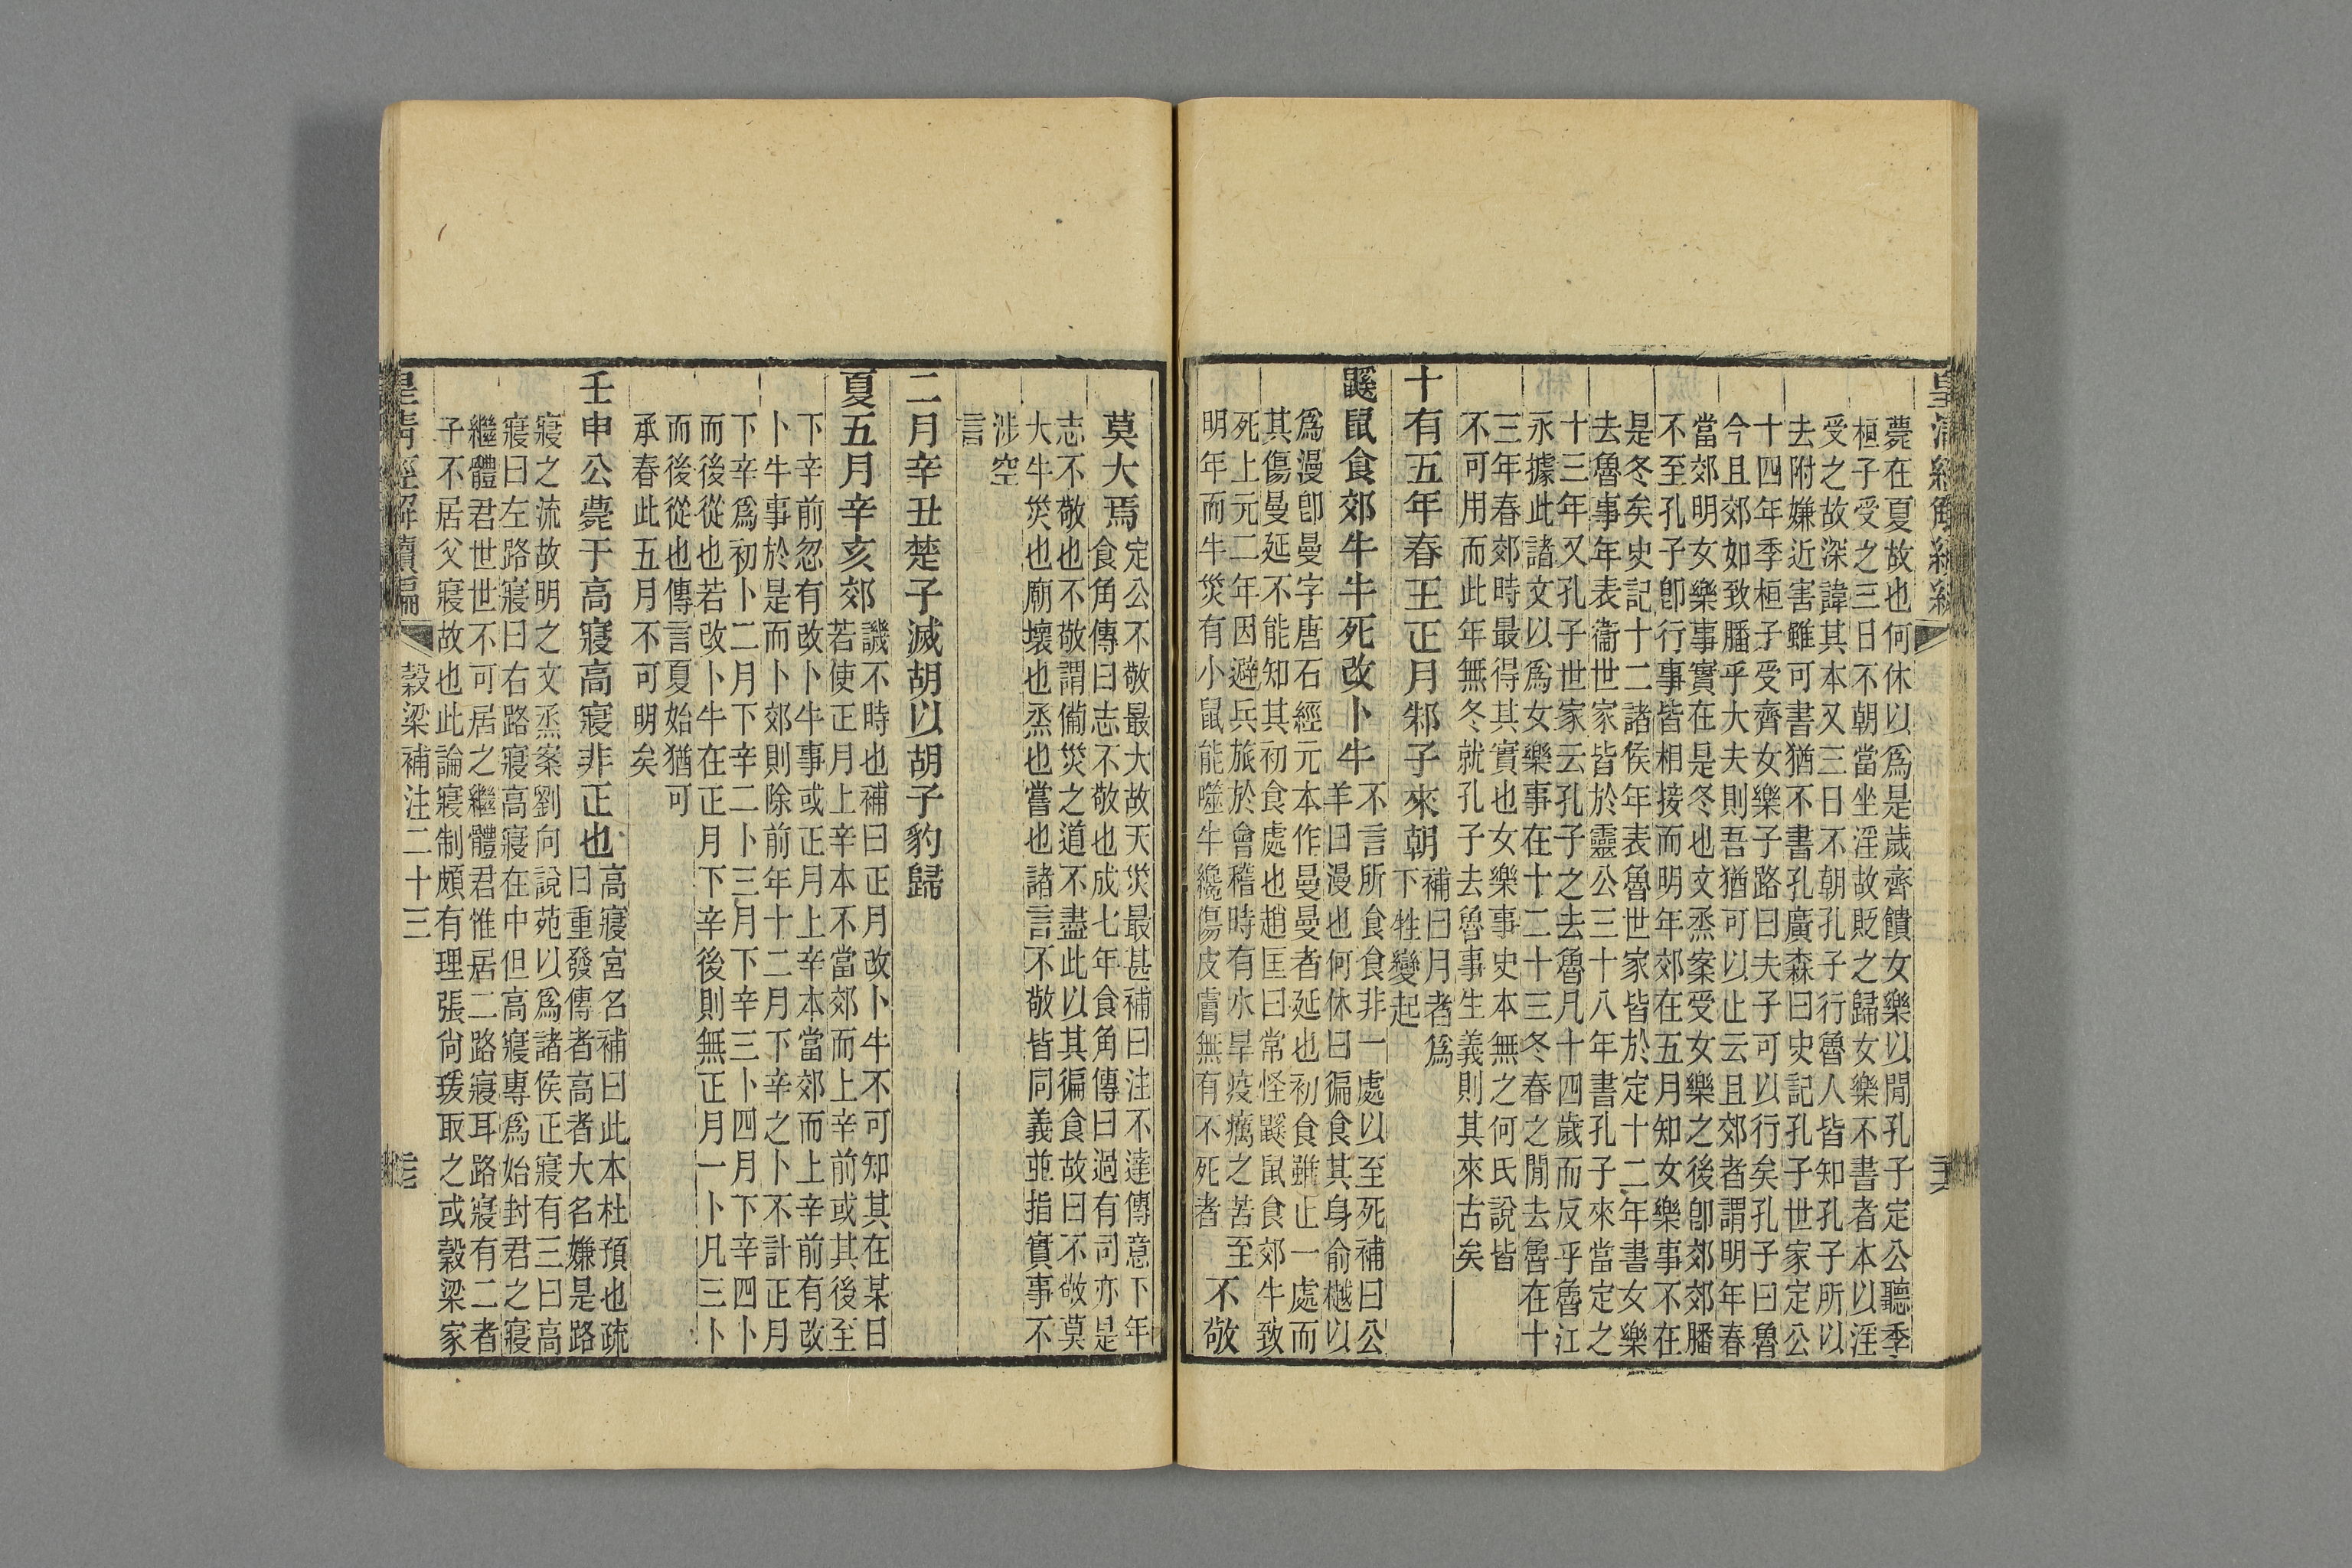 皇清經解續編
薨在夏故也何休以爲是歲齊饋女樂以閒孔子定公聽季
桓子受之三日不朝當坐淫故貶之歸女樂不書者本以淫
受之故深諱其本又三日不朝孔子行魯人皆知孔子所以
去附嫌近害雖可書猶不書孔廣森曰史記孔子世家定公
十四年季桓子受齊女樂子路曰夫子可以行矣孔子曰魯
今且郊如致膰乎大夫則吾猶可以止云且郊者謂明年春
當郊明女樂事實在是冬也文烝案受女樂之後卽郊郊膰
不至孔子卽行事皆相接而明年郊在五月知女樂事不在
是冬矣史記十二諸侯年表魯世家皆於定十二年書女樂
去魯事年表衞世家皆於靈公三十八年書孔子來當定之
十三年又孔子世家云孔子之去魯凡十四歲而反乎魯江
永據此諸文以爲女樂事在十二十三冬春之閒去魯在十
三年春郊時最得其實也女樂事史本無之何氏說皆
不可用而此年無冬就孔子去魯事生義則其來古矣
十有五年春王正月邾子來朝補曰月者爲
下牲變起
鼷鼠食郊牛牛死改卜牛不言所食食非一處以至死補曰公
羊曰漫也何休曰徧食其身俞樾以
爲漫卽曼字唐石經元本作曼曼者延也初食雖止一處而
其傷曼延不能知其初食處也趙匡曰常怪鼷鼠食郊牛致
死上元二年因避兵旅於會稽時有水旱疫癘之苦至
明年而牛災有小鼠能噬牛纔傷皮膚無有不死者不敬
莫大焉定公不敬最大故天災最甚補曰注不達傳意下年
食角傳曰志不敬也成七年食角傳曰過有司亦是
志不敬也不敬謂備災之道不盡此以其徧食故曰不敬莫
大牛災也廟壞也烝也嘗也諸言不敬皆同義並指實事不
涉空
言
二月辛丑楚子滅胡以胡子豹歸
夏五月辛亥郊譏不時也補曰正月改卜牛不可知其在某日
若使正月上辛本不當郊而上辛前或其後至
下辛前忽有改卜牛事或正月上辛本當郊而上辛前有改
卜牛事於是而卜郊則除前年十二月下辛之卜不計正月
下辛爲初卜二月下辛二卜三月下辛三卜四月下辛四卜
而後從也若改卜牛在正月下辛後則無正月一卜凡三卜
而後從也傳言夏始猶可
承春此五月不可明矣
壬申公薨于高寢高寢非正也高寢宮名補曰此本杜預也疏
曰重發傳者高者大名嫌是路
寢之流故明之文烝案劉向說苑以爲諸侯正寢有三曰高
寢曰左路寢曰右路寢高寢在中但高寢專爲始封君之寢
繼體君世世不可居之繼體君惟居二路寢耳路寢有二者
子不居父寢故也此論寢制頗有理張尙瑗取之或穀梁家
皇淸經解續編　穀梁補注二十三